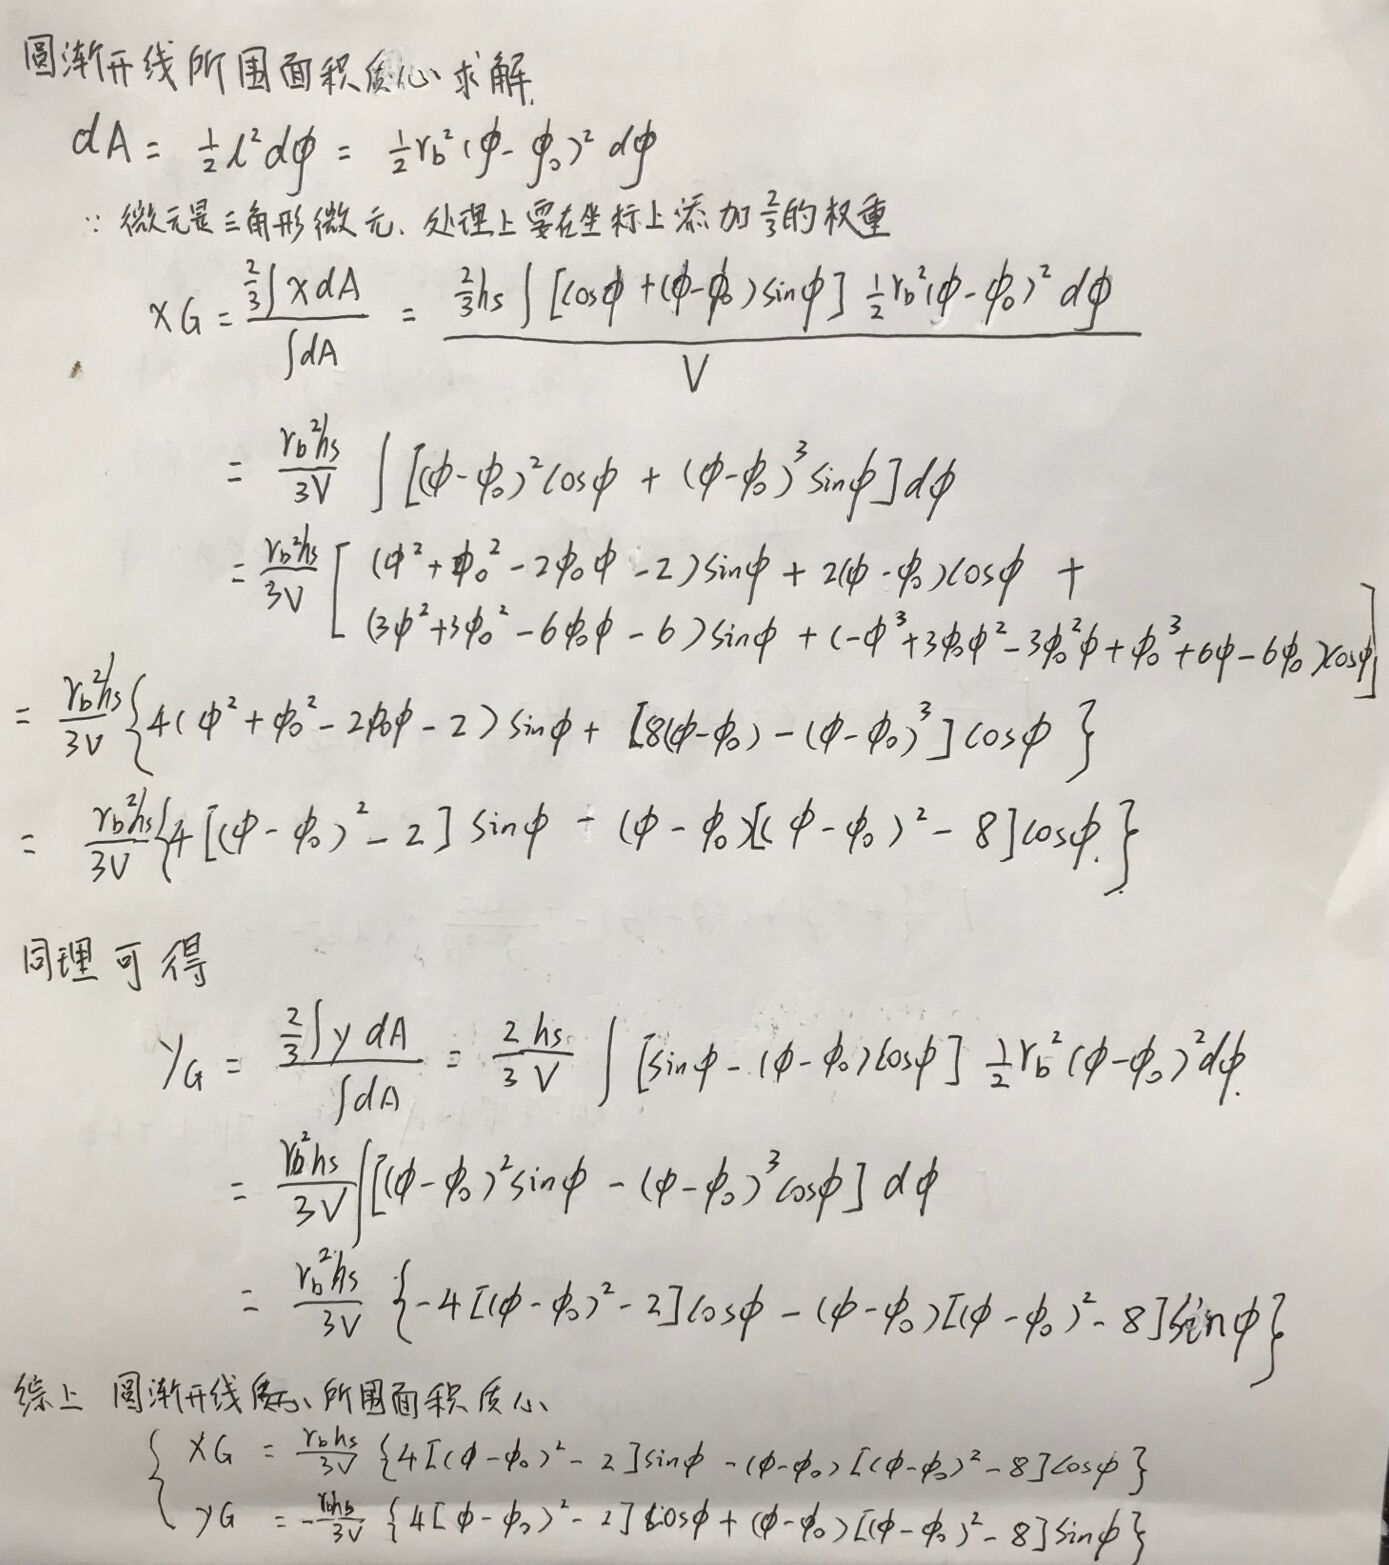 圆渐开线所围面积质心求解.
dA = ½ l² dϕ = ½ r_b² (ϕ-ϕ₀)² dϕ
∵ 微元是三角形微元、处理上要在坐标上添加 2/3 的权重
xG = (2/3 ∫ x dA) / (∫ dA) = (2/3 hs ∫ [cosϕ + (ϕ-ϕ₀) sinϕ] ½ r_b² (ϕ-ϕ₀)² dϕ) / V
= r_b² hs / 3V ∫ [(ϕ-ϕ₀)² cosϕ + (ϕ-ϕ₀)³ sinϕ] dϕ
= r_b² hs / 3V [ (ϕ² + ϕ₀² - 2ϕ₀ϕ - 2) sinϕ + 2(ϕ-ϕ₀) cosϕ +
(3ϕ² + 3ϕ₀² - 6ϕ₀ϕ - 6) sinϕ + (-ϕ³ + 3ϕ₀ϕ² - 3ϕ₀²ϕ + ϕ₀³ + 6ϕ - 6ϕ₀) cosϕ ]
= r_b² hs / 3V { 4(ϕ² + ϕ₀² - 2ϕ₀ϕ - 2) sinϕ + [8(ϕ-ϕ₀) - (ϕ-ϕ₀)³] cosϕ }
= r_b² hs / 3V { 4[(ϕ-ϕ₀)² - 2] sinϕ - (ϕ-ϕ₀)[(ϕ-ϕ₀)² - 8] cosϕ. }
同理可得
yG = (2/3 ∫ y dA) / (∫ dA) = 2 hs / 3 V ∫ [sinϕ - (ϕ-ϕ₀) cosϕ] ½ r_b² (ϕ-ϕ₀)² dϕ.
= r_b² hs / 3V ∫ [(ϕ-ϕ₀)² sinϕ - (ϕ-ϕ₀)³ cosϕ] dϕ
= r_b² hs / 3V { -4[(ϕ-ϕ₀)² - 2] cosϕ - (ϕ-ϕ₀)[(ϕ-ϕ₀)² - 8] sinϕ }
综上 圆渐开线所围面积质心
{ xG = r_b hs / 3V { 4[(ϕ-ϕ₀)² - 2] sinϕ - (ϕ-ϕ₀)[(ϕ-ϕ₀)² - 8] cosϕ }
yG = - r_b hs / 3V { 4[ϕ-ϕ₀)² - 2] cosϕ + (ϕ-ϕ₀)[(ϕ-ϕ₀)² - 8] sinϕ }